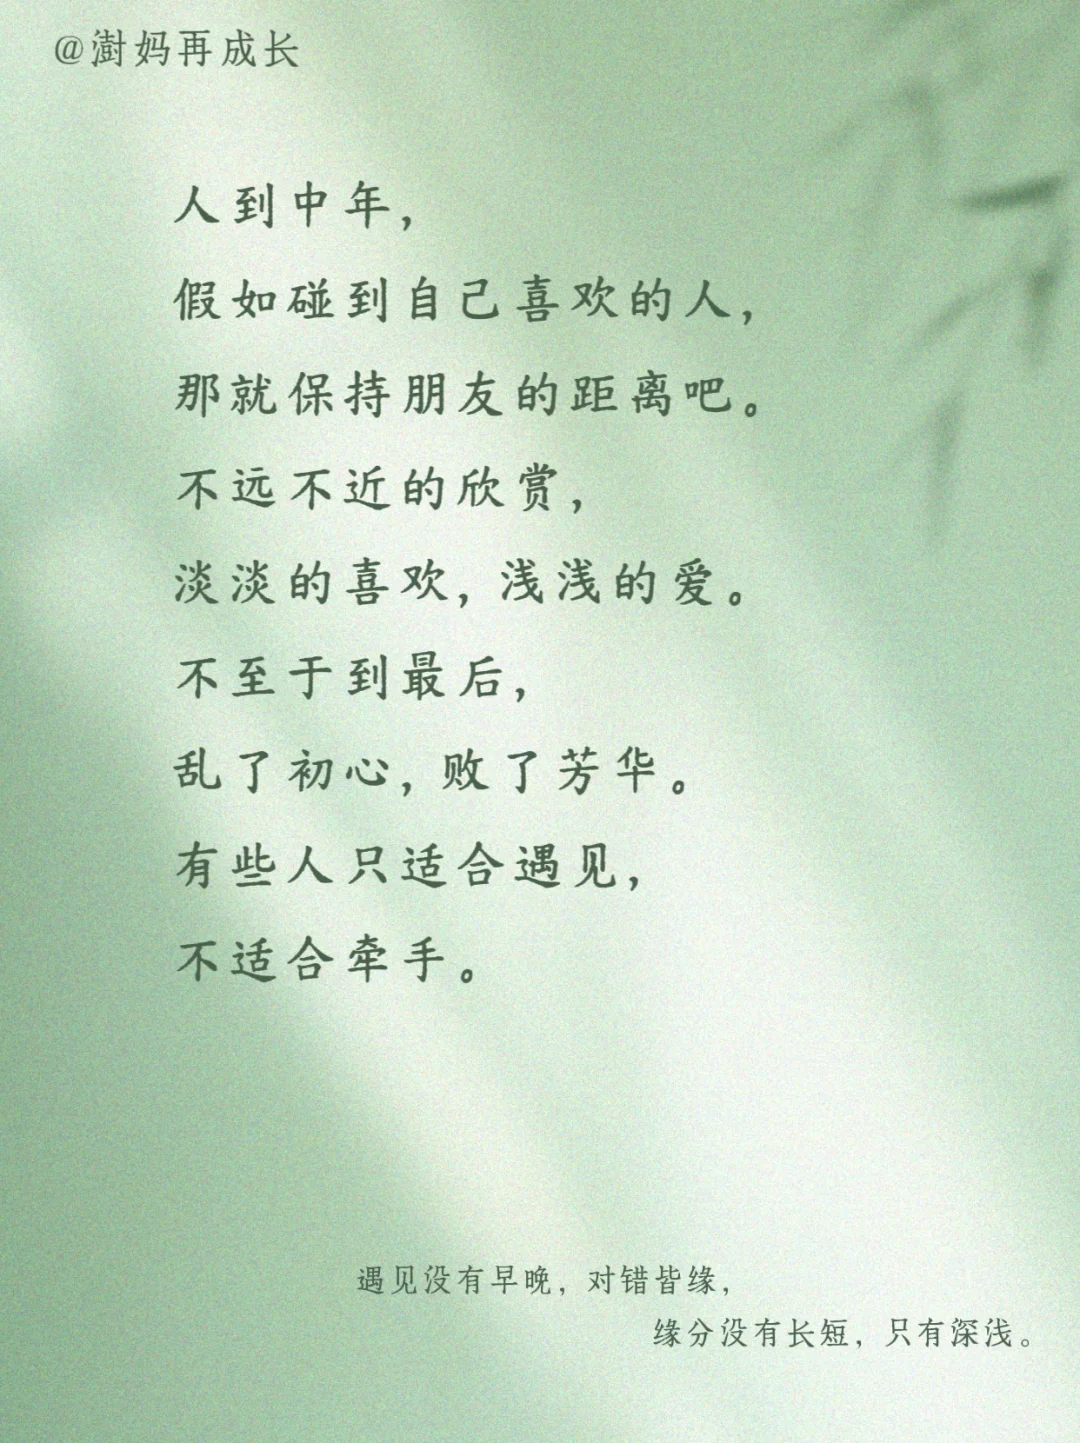 @澍妈再成长
人到中年，
假如碰到自己喜欢的人，
那就保持朋友的距离吧。
不远不近的欣赏，
淡淡的喜欢，浅浅的爱。
不至于到最后，
乱了初心，败了芳华。
有些人只适合遇见，
不适合牵手。
遇见没有早晚，对错皆缘，
缘分没有长短，只有深浅。